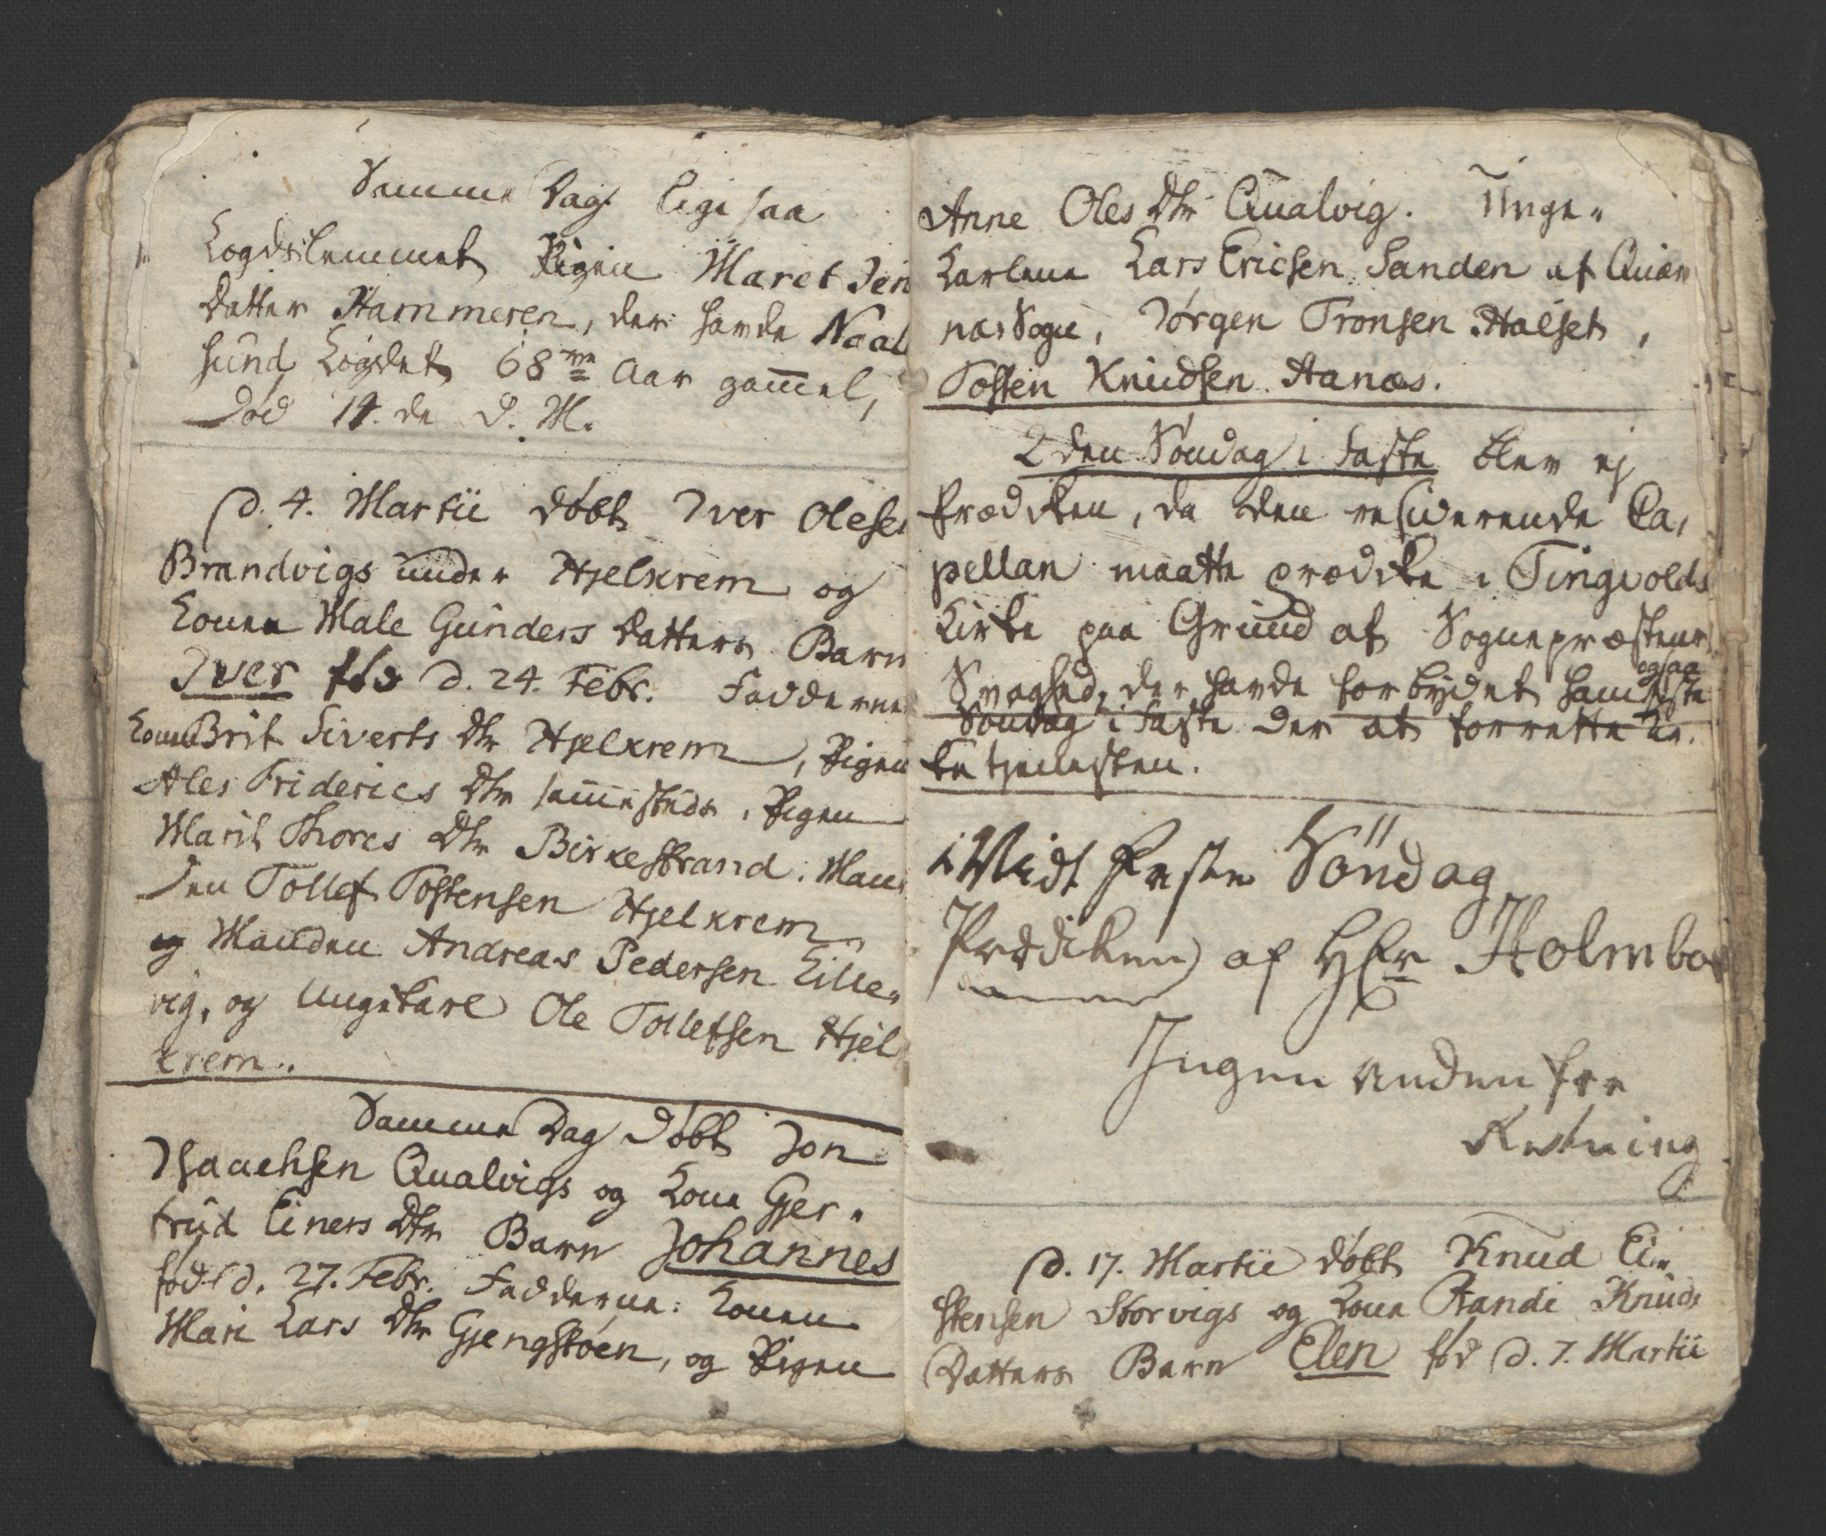 Samme Dag ligesaa
Logdslemmet Pigen Maret Jen
datter Hammeren, der havde Naal
sund Logdet 68 Aar gammel,
død 14. de D. M.
d. 4. Martii døbt Iver Olese
Brandvigs under Hjelkrem og
Kone Male Gunders Datters Barn
Iver fød d. 24. Febr. Fadderne
Kone Brit Siverts Dtr Hjelkrem, Pigen
Ales Friderics Dtr sammesteds, Pigen
Marit Thores Dtr Birkestrand. Man
den Tollef Tostensen Hjelkrem
og Manden Andreas Pedersen Lille-
vig, og Ungekarl Ole Tollefsen Hjel
krem.
Samme Dag døbt Jon
Isaachsen Qualvigs og Kone Gjer-
trud Einers Dtr Barn Johannes
fød d. 27. Febr. Fadderne: Konen
Mari Lars Dtr Gjengstøen, og Pigen
Anne Oles Dtr Qualvig. Unge-
karlene Lars Ericsen Sanden af Quær
næs Sogn, Jørgen Tronsen Halset,
Tosten Knudsen Aanæs.
2den Søndag i Faste blev ej
Prædiken, da den residerende Ca-
pellan maatte prædike i Tingvolds
Kirke paa Grund af Sognepræstens
Svaghed, der havde forbydet ham ogsaa 1ste
Søndag i Faste der at forrette Kir-
ketjenesten.
Midt Faste Søndag
Prædiken af Hr Holmboe
Ingen anden for
Retning
d. 17. Martii døbt Knud Ei-
stensen Storvigs og Kone Randi Knuds
Datters Barn Elen fød d. 7. Martii